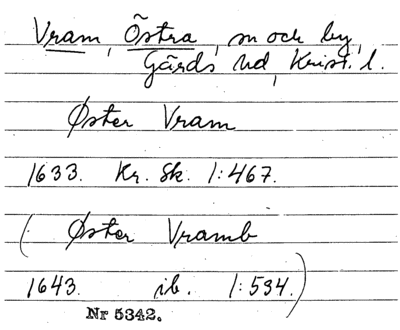 Vram, Östra, sn och by,
Gärds hd, Krist. l.
Øster Vram
1633. Kr. Sk. 1:467.
(Øster Vramb
1643. ib. 1:534.)
Nr 5342.